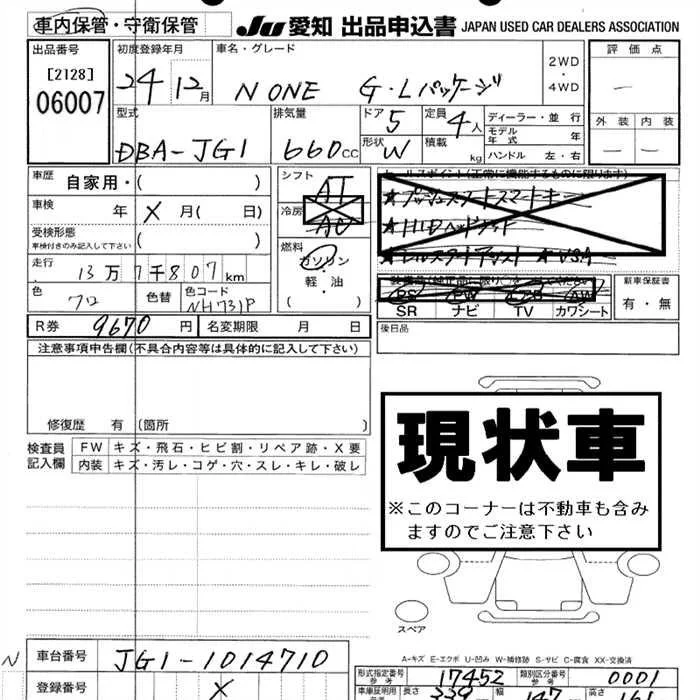 車内保管・守衛保管
JU 愛知 出品申込書 JAPAN USED CAR DEALERS ASSOCIATION
出品番号
[2128]
06007
初度登録年月
24 12月
車名・グレード
N ONE G・Lパッケージ
2WD
・
4WD
評価点
外装 内装
型式
DBA-JG1
排気量
660cc
ドア 5
形状 W
定員 4人
積載 kg
ディーラー・並行
モデル年式 年
ハンドル 左・右
車歴 自家用・( )
車検 年 X 月( 日)
受検形態
車検付きのみ記入して下さい ( )
走行 13万7千807km
色 クロ 色替 色コード NH731P
シフト
AT
冷房
AC
燃料
ガソリン
・
軽・油
( )
セールスポイント(正常に機能するものに限ります)
★プッシュスタートスマートキー
★HIDヘッドライト
★VSA
PS PW AW
SR ナビ TV カワシート
新車保証書
有・無
後日品
R券 9670円 名変期限 月 日
注意事項申告欄(不具合内容等は具体的に記入して下さい)
修復歴 有(箇所 )
検査員記入欄
FW キズ・飛石・ヒビ割・リペア跡・X要
内装 キズ・汚レ・コゲ・穴・スレ・キレ・破レ
現状車
※このコーナーは不動車も含み
ますのでご注意下さい
スペア
A-キズ E-エクボ U-凹み W-補修跡 S-サビ C-腐食 XX-交換済
N 車台番号 JG1-1014710
登録番号 X
形式指定番号 参考 17452 類別区分番号 参考 0001
車庫証明用 長さ 339 幅 147 高さ 161